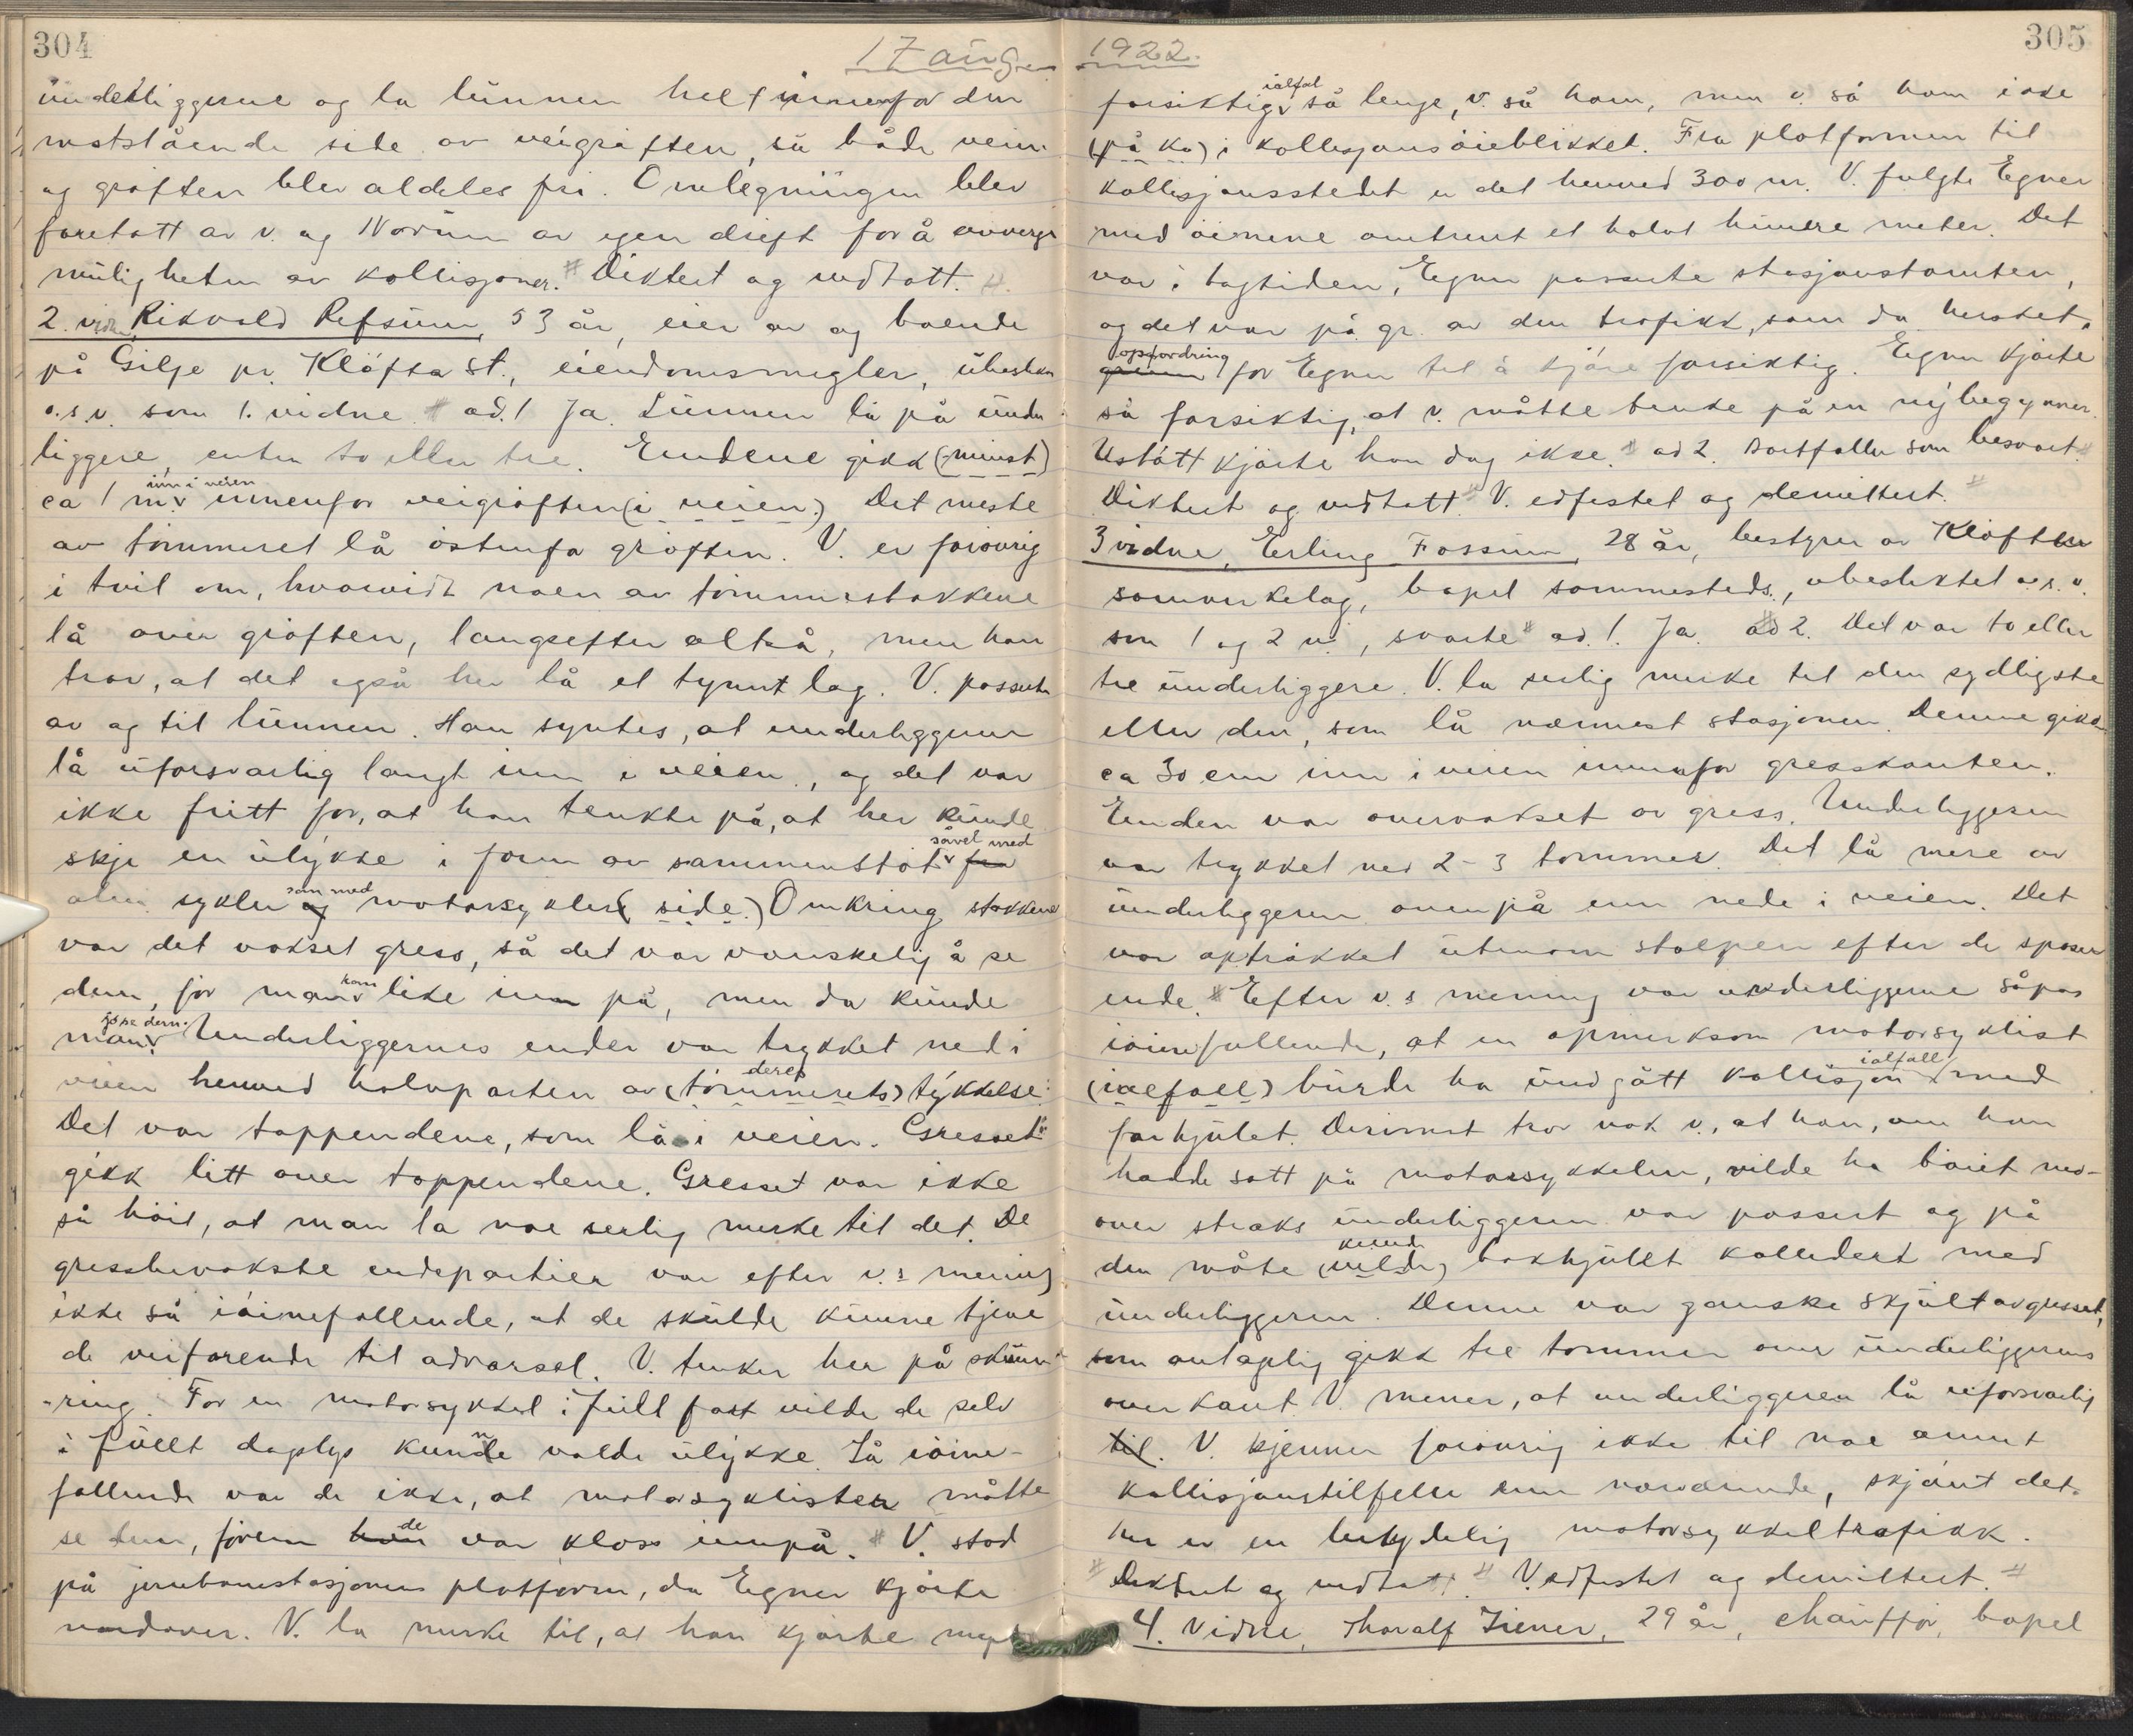 304
17 aug.
underliggerne og la lunnen helt innenfor den
motstående side av veigrøften, så både veien
og grøften blev aldeles fri. Omlegningen blev
foretatt av v. og Norum av egen drift for å avverge
muligheten av kollisjoner. # Diktert og vedtatt. #
2. vidne Rikvald Refsum, 53 år, eier av og boende
på Gilje pr. Kløfta st., eiendomsmegler, ubeslektet
o.s.v. som 1. vidne. # ad. 1 Ja. Lunnen lå på under-
liggere, enten to eller tre. Endene gikk (minst)
ca 1 m. inn i veien innenfor veigrøften (i veien.) Det meste
av tømmeret lå østenfor grøften. V. er forøvrig
i tvil om, hvorvidt noen av tømmerstokkene
lå over grøften, langsefter altså, men han
tror, at det også her lå et tynnt lag. V. passerte
av og til lunnen. Han syntes, at underliggerne
lå uforsvarlig langt inn i veien, og det var
ikke fritt for, at han tenkte på, at her kunde
skje en ulykke i form av sammenstøt såvel med fra
alm. sykler som med og motorsykler (side.) Omkring stokkene
var det vokset gress, så det var vanskelig å se
dem, før man kom like inn på, men da kunde
man jo se dem. Underliggernes ender var trykket ned i
veien henved halvparten av (tømmerets) deres tykkelse.
Det var toppendene, som lå i veien. Gresset
gikk litt over toppendene. Gresset var ikke
så høit, at man la noe serlig merke til det. De
gressbevokste endepartier var efter v.s mening
ikke så iøinefallende, at de skulde kunne tjene
de veifarende til advarsel. V. tenker her på skum-
-ring. For en motorsykkel i full fart vilde de selv
i fullt dagslys kunne volde ulykke. Så iøine-
fallende var de ikke, at motorsyklisten måtte
se dem, førenn han de var kloss innpå. # V. stod
på jernbanestasjonens platform, da Egner kjørte
nordover. V. la merke til, at han kjørte meget
1922.
305
forsiktig ialfal så lenge, v. så ham, men v. så ham ikke
(på ko) i kollisjonsøieblikket. Fra platformen til
kollisjonsstedet er det henved 300 m. V. fulgte Egner
med øinene omtrent et halvt hundre meter. Det
var i togtiden, Egner passerte stasjonstomten,
og det var på gr. av den trafikk, som da hersket,
grunn opfordring for Egner til å kjøre forsiktig. Egner kjørte
så forsiktig, at v. måtte tenke på en nybegynner.
Ustøtt kjørte han dog ikke. # ad 2. Bortfaller som besvart. #
Diktert og vedtatt. # V. edfestet og demittert. #
3 vidne, Erling Fossum, 28 år, bestyrer av Kløften
samvirkelag, bopel sammesteds., ubeslektet o.s.v.
som 1 og 2 v., svarte # ad. 1. Ja. ad 2. Det var to eller
tre underliggere. V. la serlig merke til den sydligste
eller den, som lå nærmest stasjonen. Denne gikk
ca 30 cm inn i veien innenfor gresskanten.
Enden var overvokset av gress. Underliggeren
var trykket ned 2-3 tommer. Det lå mere av
underliggeren ovenpå enn nede i veien. Det
var optråkket utenom stolpen efter de spaser
ende. # Efter v.s mening var underliggerne såpas
iøinefallende, at en opmerksom motorsyklist
(ialfall) burde ha undgått kollisjon ialfall med
forhjulet. Derimot tror nok v., at han, om han
hadde satt på motorsykkelen, vilde ha bøiet ned-
over straks underliggeren var passert og på
den måte (vilde) kunde bakhjulet kollidert med
underliggeren. Denne var ganske skjult av gresset,
som antagelig gikk tre tommer over underliggerens
overkant. V. mener, at underliggeren lå uforsvarlig
til. V. kjenner forøvrig ikke til noe annet
kollisjonstilfelle enn nærværende, skjønt det
her er en betydelig motorsykkeltrafikk.
# Diktert og vedtatt. # V. edfestet og demittert. #
4. Vidne, Thoralf Isener, 29 år, chauffør, bopel